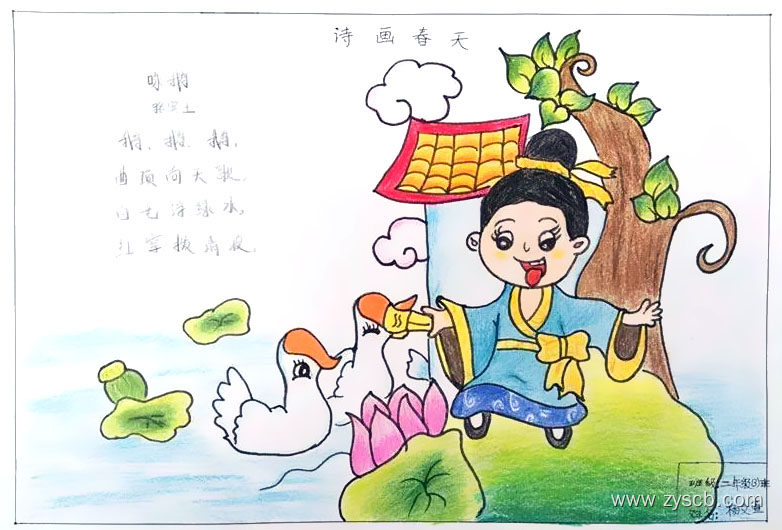 诗画春天
咏鹅
骆宾王
鹅，鹅，鹅，
曲项向天歌。
白毛浮绿水，
红掌拨清波。
班级:二年级
www.zyscb.com
姓名: